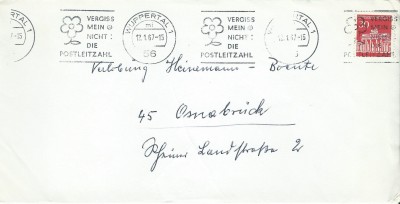 WUPPERTAL 1
-15
VERGISS
MEIN
NICHT:
DIE
POSTLEITZAHL
WUPPERTAL 1
12.1.67-15
56
VERGISS
MEIN
NICHT:
DIE
POSTLEITZAHL
WUPPERTAL 1
12.1.67-15
VERGISS
MEIN
NICHT:
DIE
POSTLEITZAHL
Verlobung Heinemann-
45 Osnabrück
Rheiner Landstraße 2